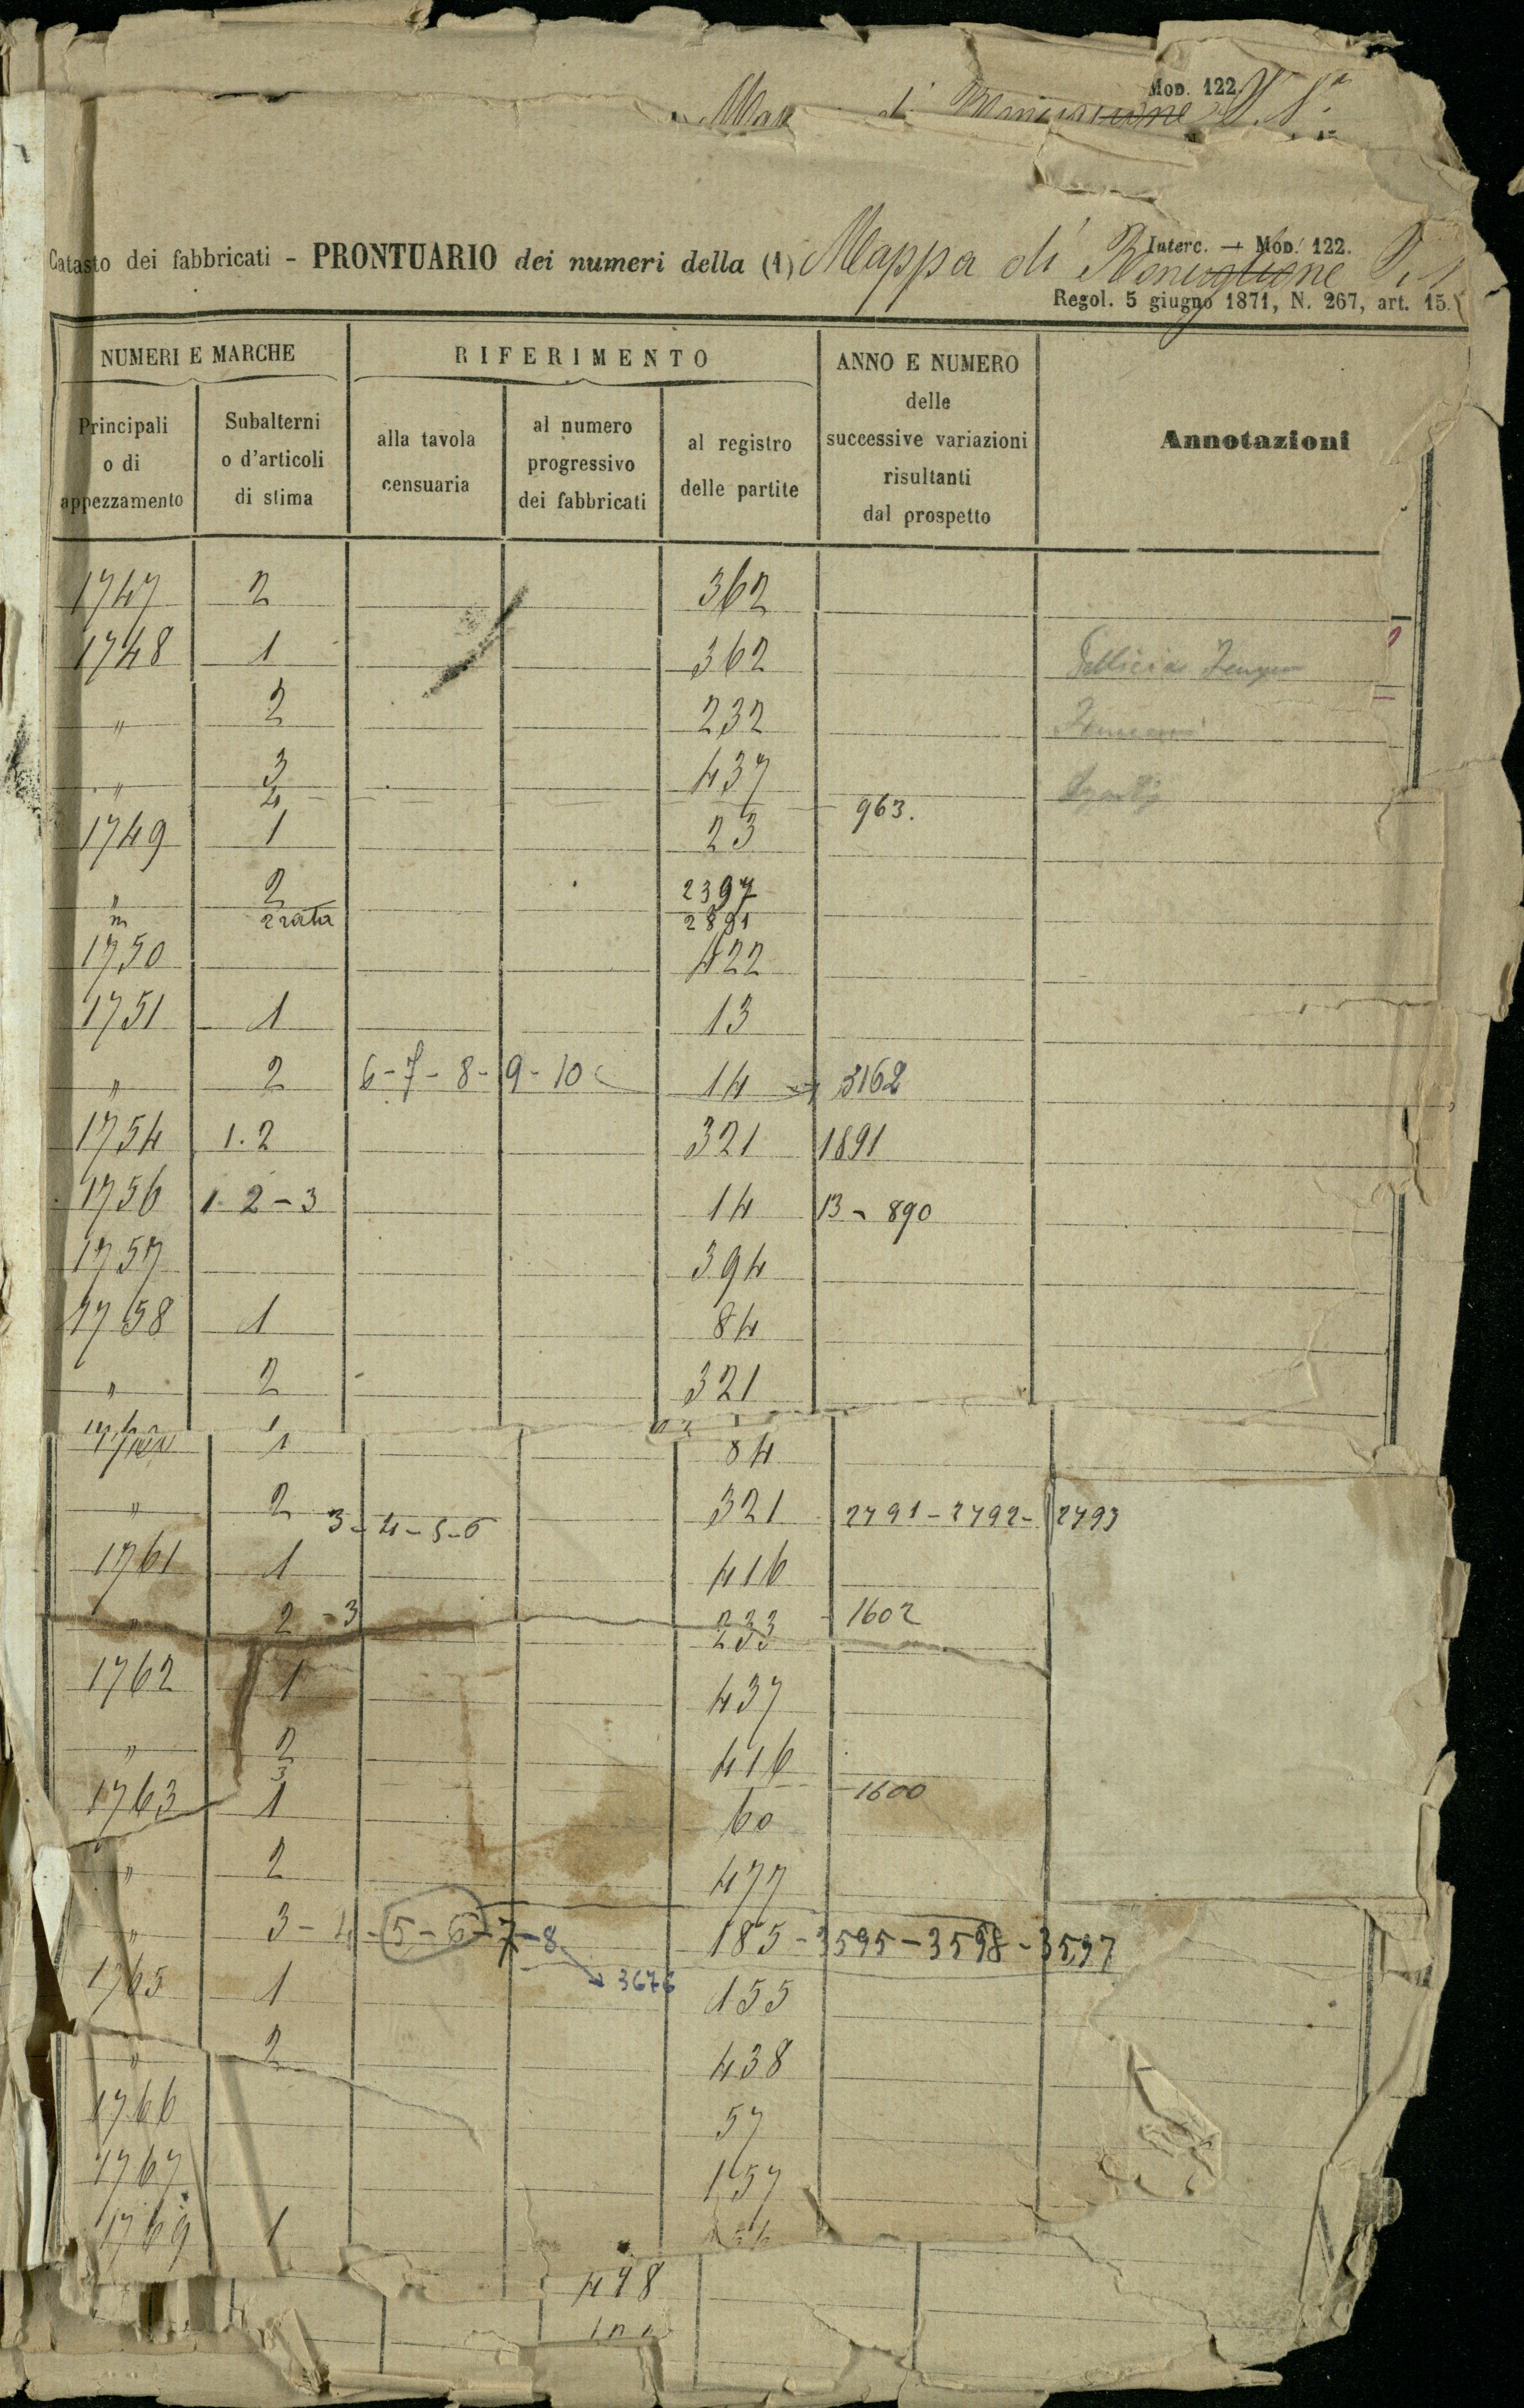 Mod. 122
Catasto dei fabbricati - PRONTUARIO dei numeri della (1) Mappa di
Interc. — Mod. 122.
Regol. 5 giugno 1871, N. 267, art. 15.
NUMERI E MARCHE
RIFERIMENTO
ANNO E NUMERO delle successive variazioni risultanti dal prospetto
Annotazioni
Principali o di appezzamento
Subalterni o d'articoli di stima
alla tavola censuaria
al numero progressivo dei fabbricati
al registro delle partite
1747 2 362
1748 1 362
" 2 232
" 3 437
4 963.
1749 1 23
" 2 2397
" 2 rata 2891
1750 422
1751 1 13
" 2 6-7-8-9-10 14 3162
1754 1.2 321 1891
1756 1-2-3 14 13-890
1757 394
1758 1 84
" 2 321
1 84
" 2 3-4-5-6 321 2791-2792-2793
1761 1 416
" 2-3 233 1602
1762 1 437
" 2 416
3 1600
1763 1 60
" 2 477
" 3-4-5-6-7-8 185-3595-3598-3597
3676
1765 1 155
" 2 438
1766 57
1767 157
1769 1
498